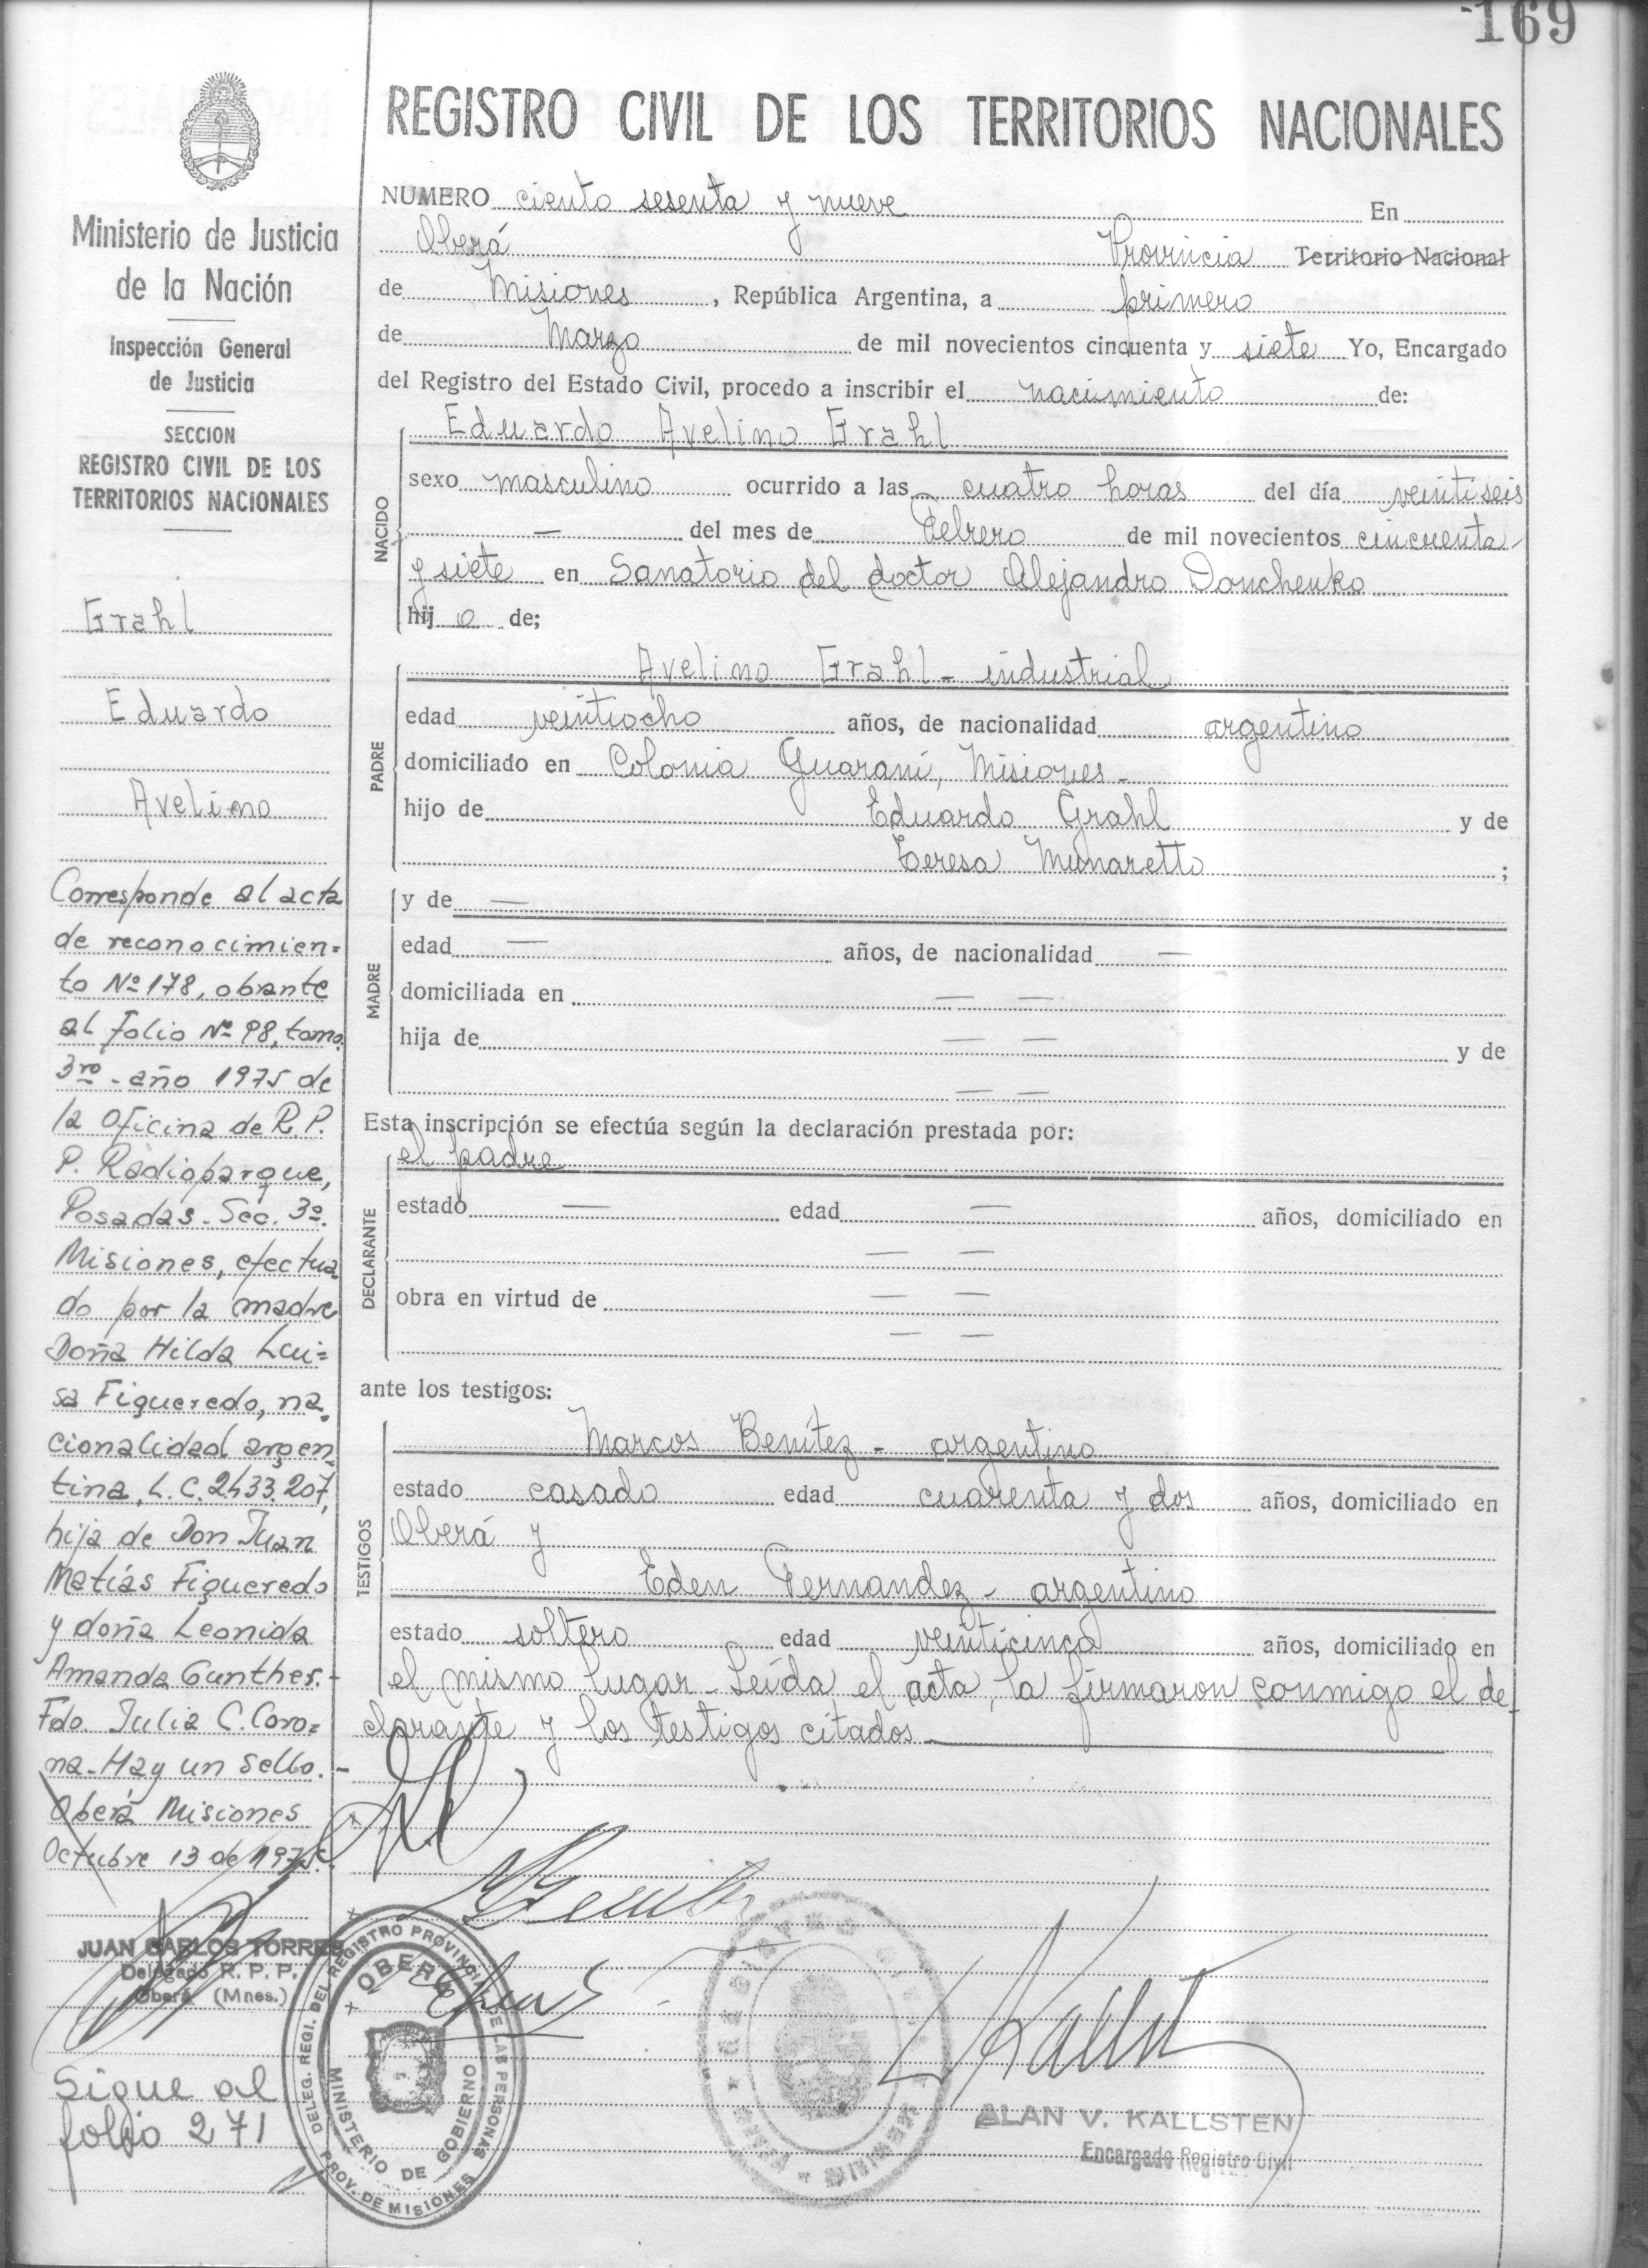 169
REGISTRO CIVIL DE LOS TERRITORIOS NACIONALES
NUMERO ciento sesenta y nueve En
Oberá Provincia Territorio Nacional
de Misiones, República Argentina, a primero
de Marzo de mil novecientos cincuenta y siete Yo, Encargado
del Registro del Estado Civil, procedo a inscribir el nacimiento de:
NACIDO
Eduardo Avelino Grahl
sexo masculino ocurrido a las cuatro horas del día veintiseis
— del mes de Febrero de mil novecientos cincuenta
y siete en Sanatorio del doctor Alejandro Donchenko
hij o de;
PADRE
Avelino Grahl - industrial
edad veintiocho años, de nacionalidad argentino
domiciliado en Colonia Guaraní, Misiones-
hijo de Eduardo Grahl y de
Teresa Munaretto ;
MADRE
y de —
edad — años, de nacionalidad —
domiciliada en — —
hija de — — y de
— —
Esta inscripción se efectúa según la declaración prestada por:
DECLARANTE
el padre
estado — edad — años, domiciliado en
— —
obra en virtud de — —
— —
ante los testigos:
TESTIGOS
Marcos Benítez - argentino
estado casado edad cuarenta y dos años, domiciliado en
Oberá y
Eden Fernandez - argentino
estado soltero edad veinticinco años, domiciliado en
el mismo lugar - Leída el acta, la firmaron conmigo el de-
clarante y los testigos citados
ALAN V. KALLSTEN
Encargado Registro Civil
Ministerio de Justicia
de la Nación
Inspección General
de Justicia
SECCION
REGISTRO CIVIL DE LOS
TERRITORIOS NACIONALES
Grahl
Eduardo
Avelino
Corresponde al acta
de reconocimien=
to Nº 178, obrante
al folio Nº 98, tomo
3ro - año 1975 de
la Oficina de R. P.
P. Radioparque,
Posadas - Sec. 3ª
Misiones, efectua
do por la madre
Doña Hilda Lui=
sa Figueredo, na
cionalidad argen
tina, L. C. 2433.207,
hija de Don Juan
Matías Figueredo
y doña Leonida
Amanda Gunther.-
Fdo. Julia C. Coro=
na - Hay un sello.-
Oberá Misiones
Octubre 13 de 1975.
JUAN CARLOS TORRES
Delegado R. P. P.
Oberá (Mnes.)
DELEG. REGI. DEL REGISTRO PROVINCIAL DE LAS PERSONAS
OBERA
MINISTERIO DE GOBIERNO
PROV. DE MISIONES
Sigue al
folio 271